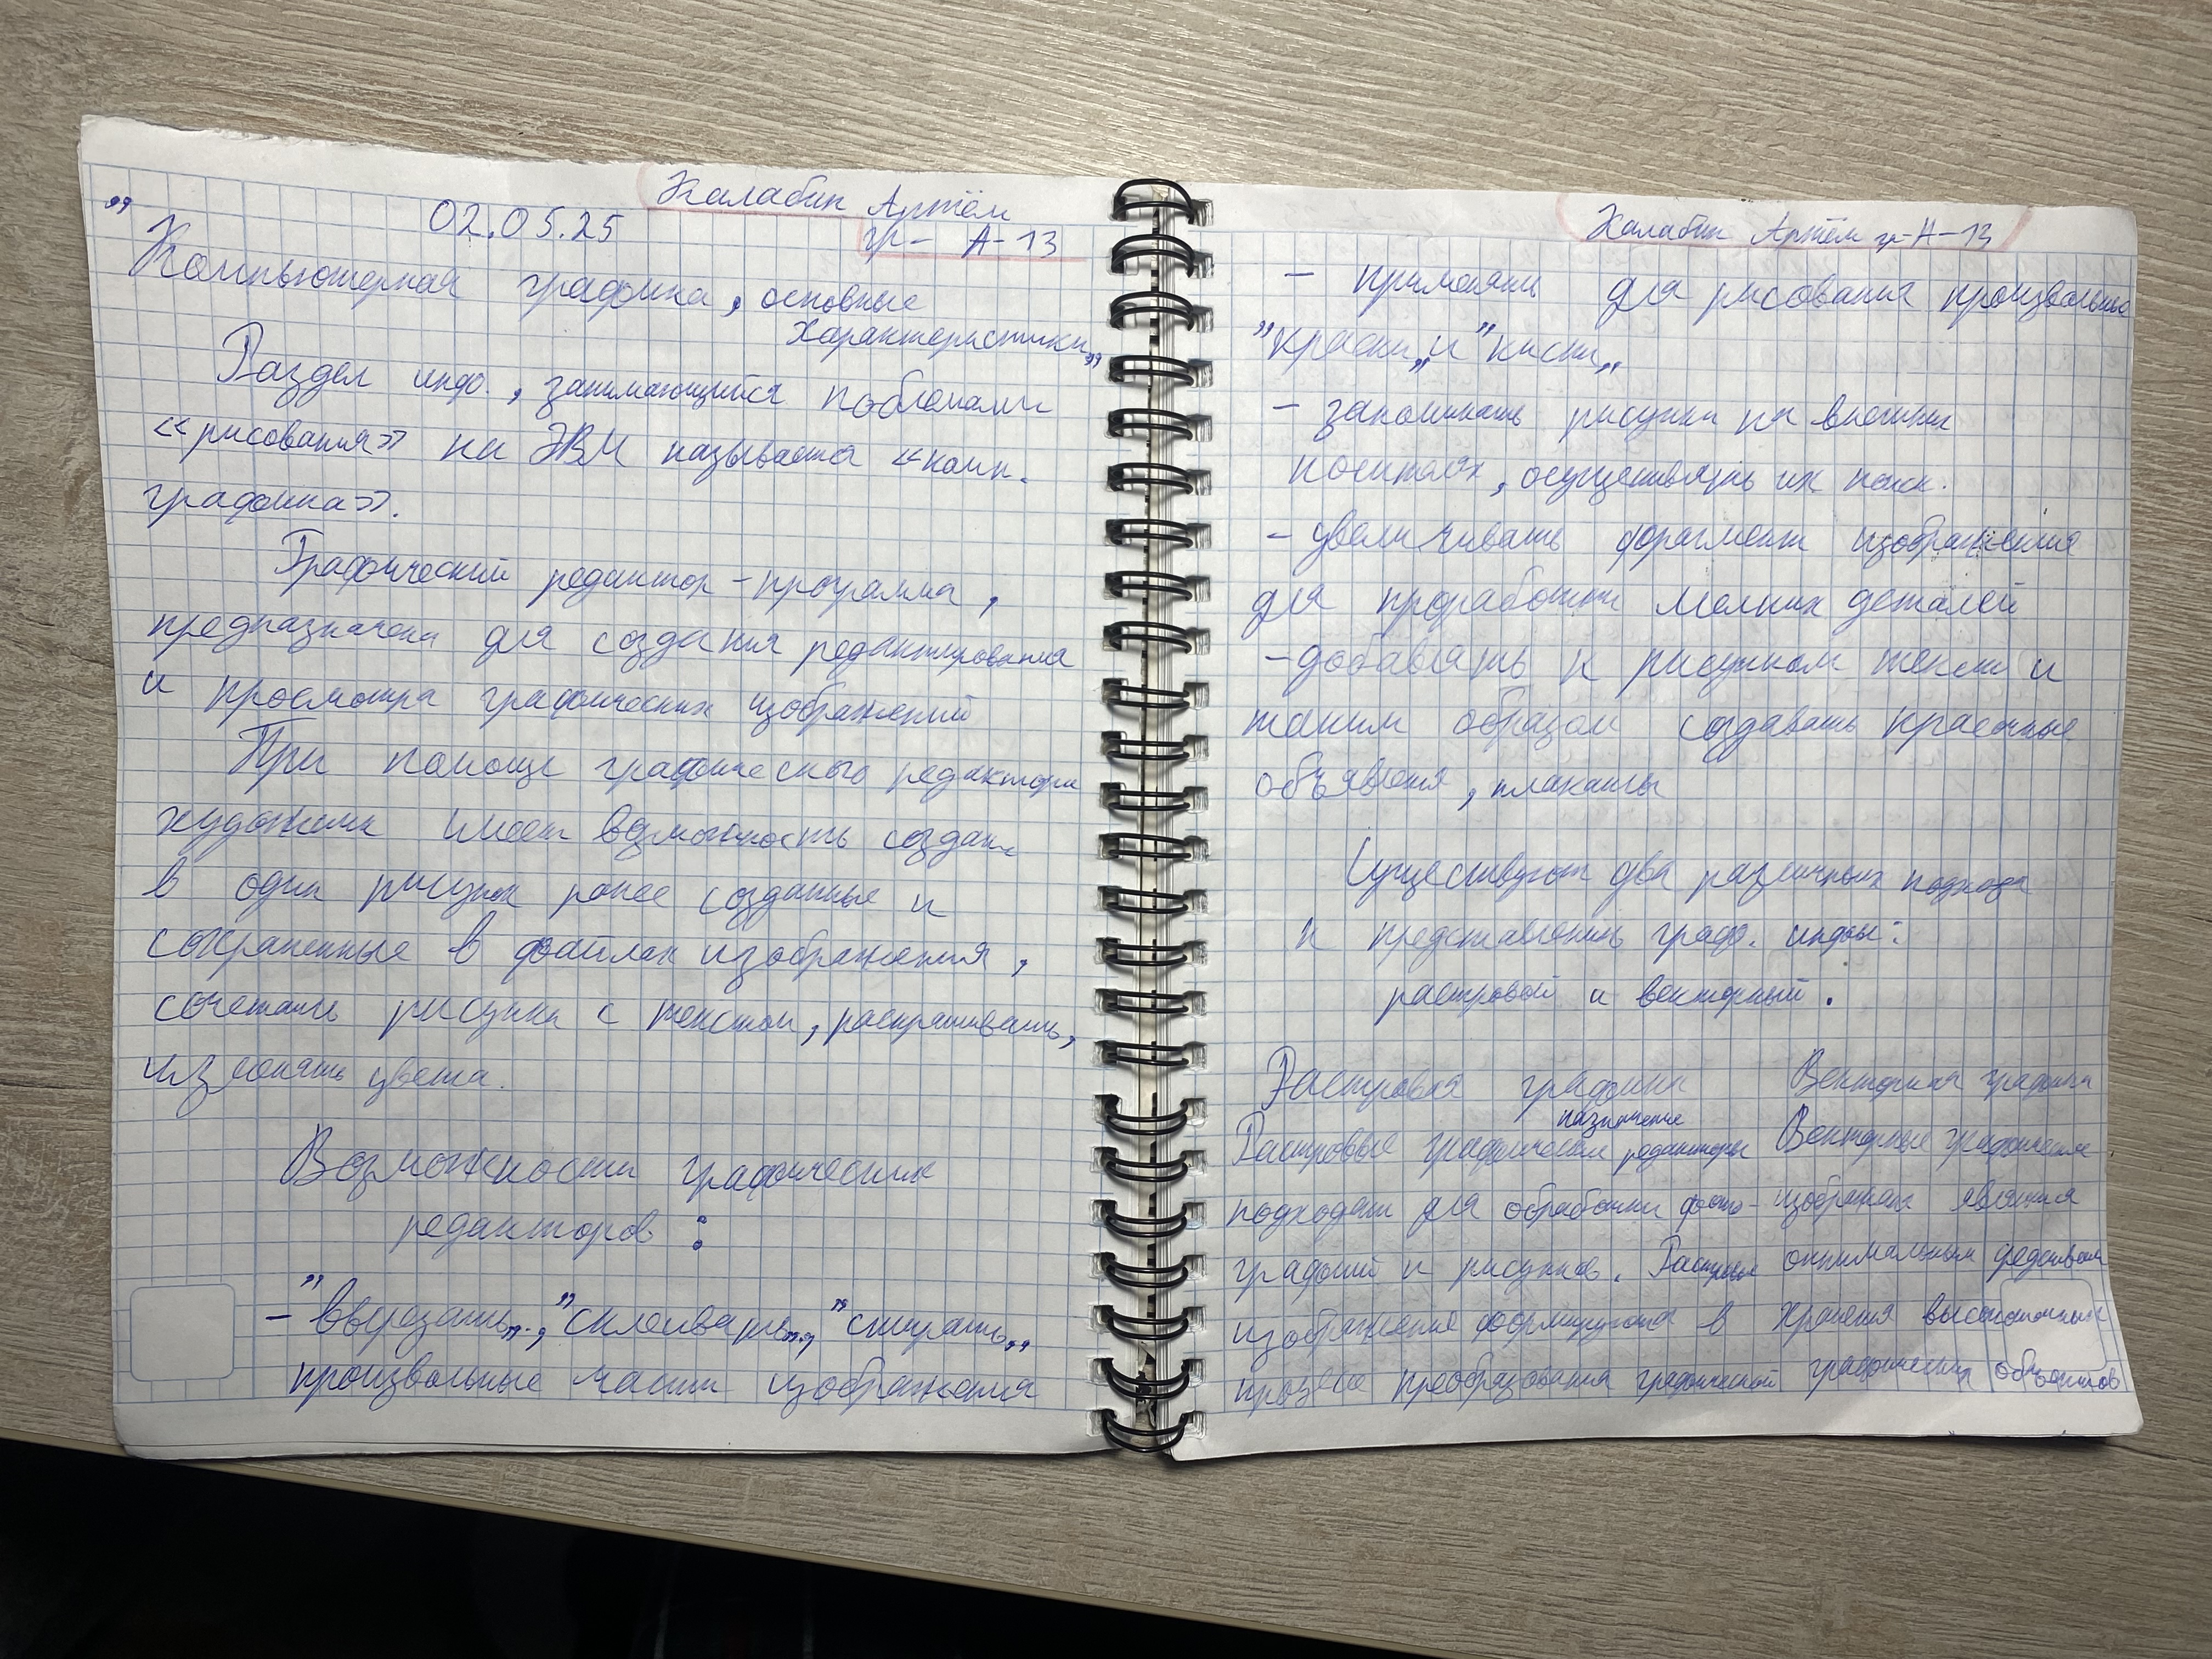 Калабин Артём
02.05.25
гр- А-13
"Компьютерная графика, основные
характеристики"
Раздел инф., занимающийся поблемами
«рисования» на ЭВМ называется «комп.
графика».
Графический редактор - программа,
предназначена для создания редактирования
и просмотра графических изображений
При помощи графического редактора
художник имеет возможность создать
в один рисунок ранее созданные и
сохраненные в файлах изображения,
сочетать рисунки с текстом, раскрашивать,
изменять цвета.
Возможности графических
редакторов:
- "вырезать„, "склеивать„, "стирать„
произвольные части изображения
Калабин Артём гр-А-13
- применять для рисования произвольные
"краски„ и "кисти„
- запоминать рисунки на внешних
носителях, осуществлять их поиск.
- увеличивать фрагмент изображения
для проработки мелких деталей
- добавлять к рисункам текст и
таким образом создавать красочные
объявления, плакаты
Существуют два различных подхода
к представлению граф. инфы:
растровой и векторный.
Растровая графика Векторная графика
назначение
Растровые графические редакторы Векторные графические
подходят для обработки фото- изображения являются
графий и рисунков. Растровые оптимальным средством
изображения формируются в хранения высокоточных
процессе преобразования графической графических объектов